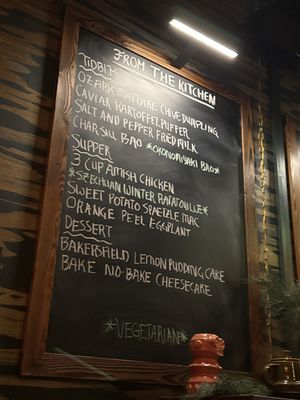 FROM THE KITCHEN
TIDBITS
OZARK MAITAKE CHIVE DUMPLING
CAVIAR KARTOFFEL PUFFER
SALT AND PEPPER FRED MILK
CHAR SIU BAO *OKONOMIYAKI BAO*
SUPPER
3 CUP AMISH CHICKEN
*SPECHUAN WINTER RATATOUILLE*
SWEET POTATO SPAETZLE MAC
ORANGE PEEL EGGPLANT
DESSERT
BAKERSFIELD LEMON PUDDING CAKE
BAKE NO-BAKE CHEESECAKE
*VEGETARIAN*